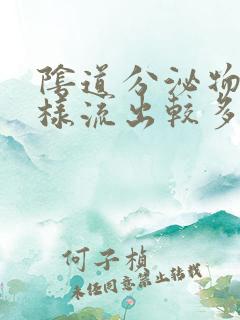 陰道分泌物
樣流出較多
何子楨
未经同意禁止转载